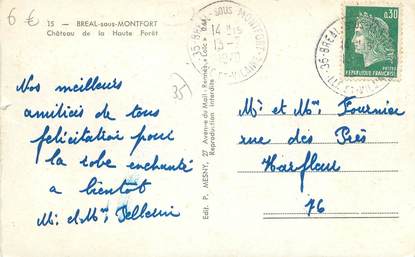 6 €
15 — BREAL-sous-MONTFORT
Château de la Haute Forêt
Nos meilleurs
amitiés de tous
félicitation pour
la robe enchanté
a bientôt
Mr et Mme Pellerin
35
Edit. P. MESNY, 27 Avenue du Mail - Rennes
Reproduction interdite
35 - BREAL-SOUS-MONTFORT
14 H 15
ILLE-ET-VILAINE
0,30
REPUBLIQUE FRANÇAISE
Mr et Mme Fournier
rue des Près
Harfleur
76